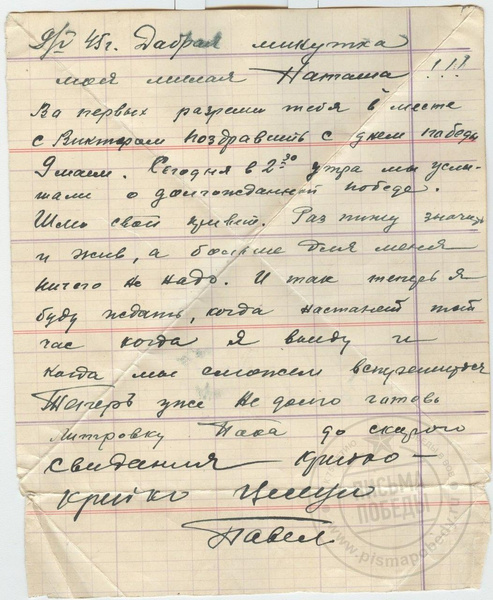 9/V 45г. Дабрая минутка
моя милая Наташа!!!
Во первых разреши тебя в месте
с Виктором поздравить с днем победы
9 маем. Сегодня в 2 30 утра мы услы-
шали о долгожданней победе.
Шлю свой привет. Раз пишу значит
и жив, а больше для меня
ничего не надо. И так теперь я
буду ждать, когда настанет тот
час когда я выйду и
когда мы сможем встретиться
Теперь уже не долго готовь
литровку Пока до скорого
свидания – крепко –
крепко целую
Павел
ПИСЬМА
ПОБЕДЫ
www.pismapobedy.ru